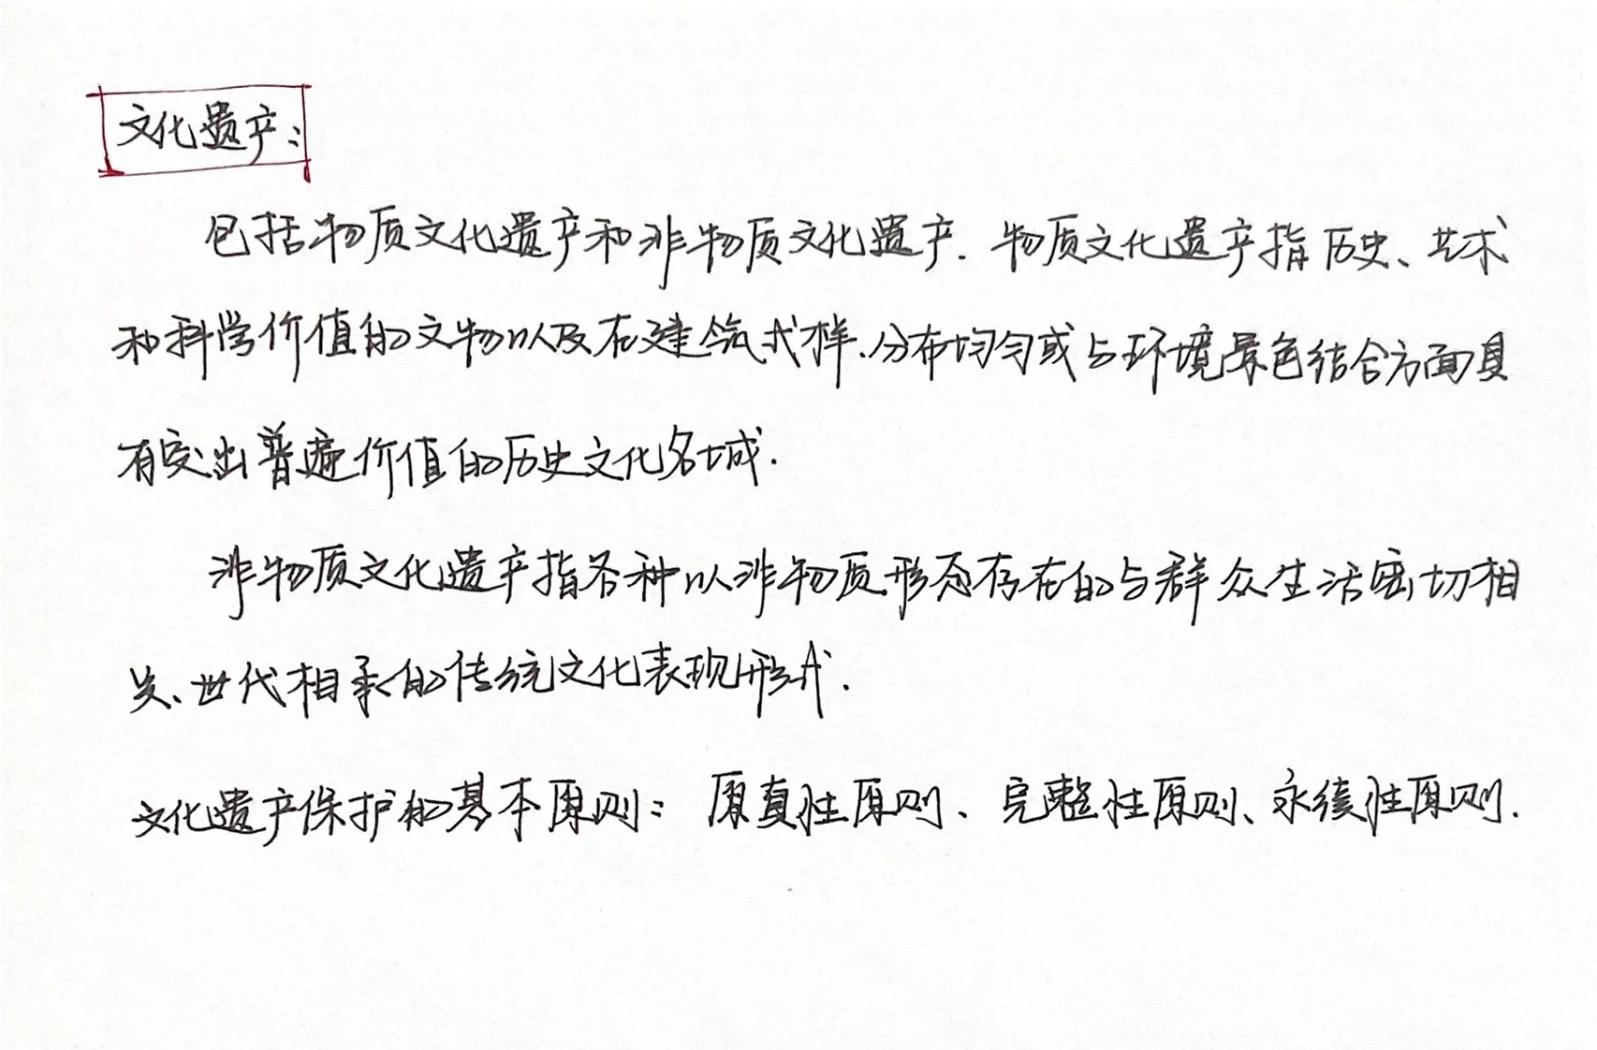 文化遗产：
包括物质文化遗产和非物质文化遗产.物质文化遗产指历史、艺术
和科学价值的文物以及在建筑式样.分布均匀或与环境景色结合方面具
有突出普遍价值的历史文化名城.
非物质文化遗产指各种以非物质形态存在的与群众生活密切相
关、世代相承的传统文化表现形式.
文化遗产保护的基本原则：原真性原则、完整性原则、永续性原则.